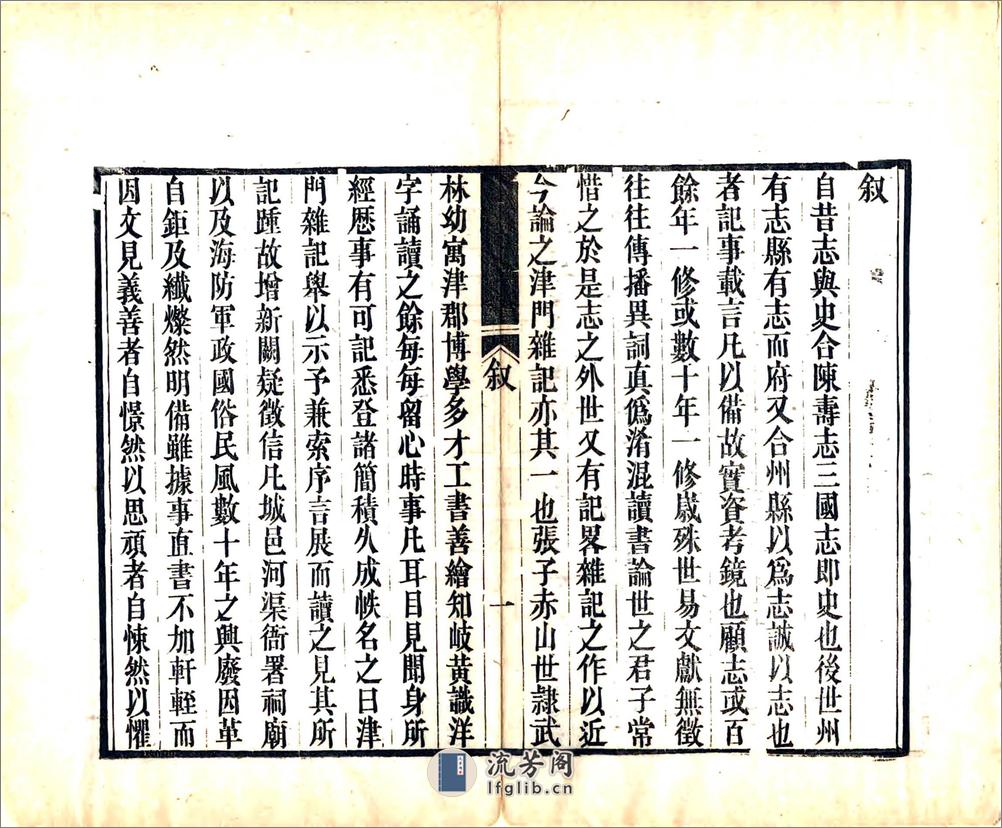 叙
自昔志與史合陳壽志三國志即史也後世州
有志縣有志而府又合州縣以爲志誠以志也
者記事載言凡以備故實資考鏡也顧志或百
餘年一修或數十年一修歲殊世易文獻無徵
往往傳播異詞真僞淆混讀書論世之君子常
惜之於是志之外世又有記畧雜記之作以近
今論之津門雜記亦其一也張子赤山世隷武
叙
一
林幼寓津郡博學多才工書善繪知岐黄識洋
字誦讀之餘每每畱心時事凡耳目見聞身所
經歴事有可記悉登諸簡積久成帙名之曰津
門雜記舉以示予兼索序言展而讀之見其所
記踵故增新闕疑徵信凡城邑河渠衙署祠廟
以及海防軍政國俗民風數十年之興廢因革
自鉅及纖燦然明備雖據事直書不加軒輊而
因文見義善者自憬然以思頑者自悚然以懼
流芳阁
lfglib.cn